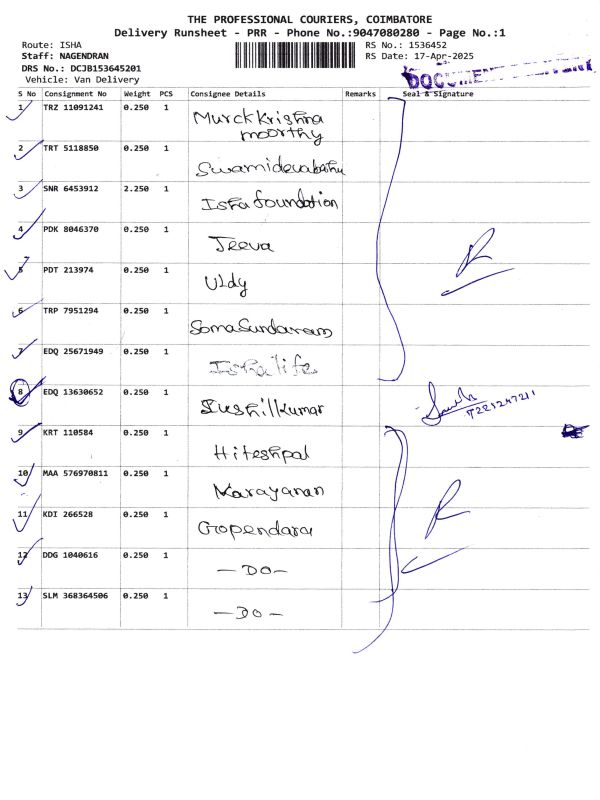 THE PROFESSIONAL COURIERS, COIMBATORE
Delivery Runsheet - PRR - Phone No.:9047080280 - Page No.:1
Route: ISHA RS No.: 1536452
Staff: NAGENDRAN RS Date: 17-Apr-2025
DRS No.: DCJB153645201
Vehicle: Van Delivery
DOCUMENT
S No Consignment No Weight PCS Consignee Details Remarks Seal & Signature
1 TRZ 11091241 0.250 1 Murckkrishna
moorthy
2 TRT 5118850 0.250 1
3 SNR 6453912 2.250 1 Isha foundation
4 PDK 8046370 0.250 1 Jeeva
5 PDT 213974 0.250 1 Uldy
6 TRP 7951294 0.250 1 Somasundaram
7 EDQ 25671949 0.250 1 Isha life
8 EDQ 13630652 0.250 1 Sushilkumar
9 KRT 110584 0.250 1 Hiteshpal
10 MAA 576970811 0.250 1 Narayanan
11 KDI 266528 0.250 1 Gopendara
12 DDG 1040616 0.250 1 - DO -
13 SLM 368364506 0.250 1 - DO -